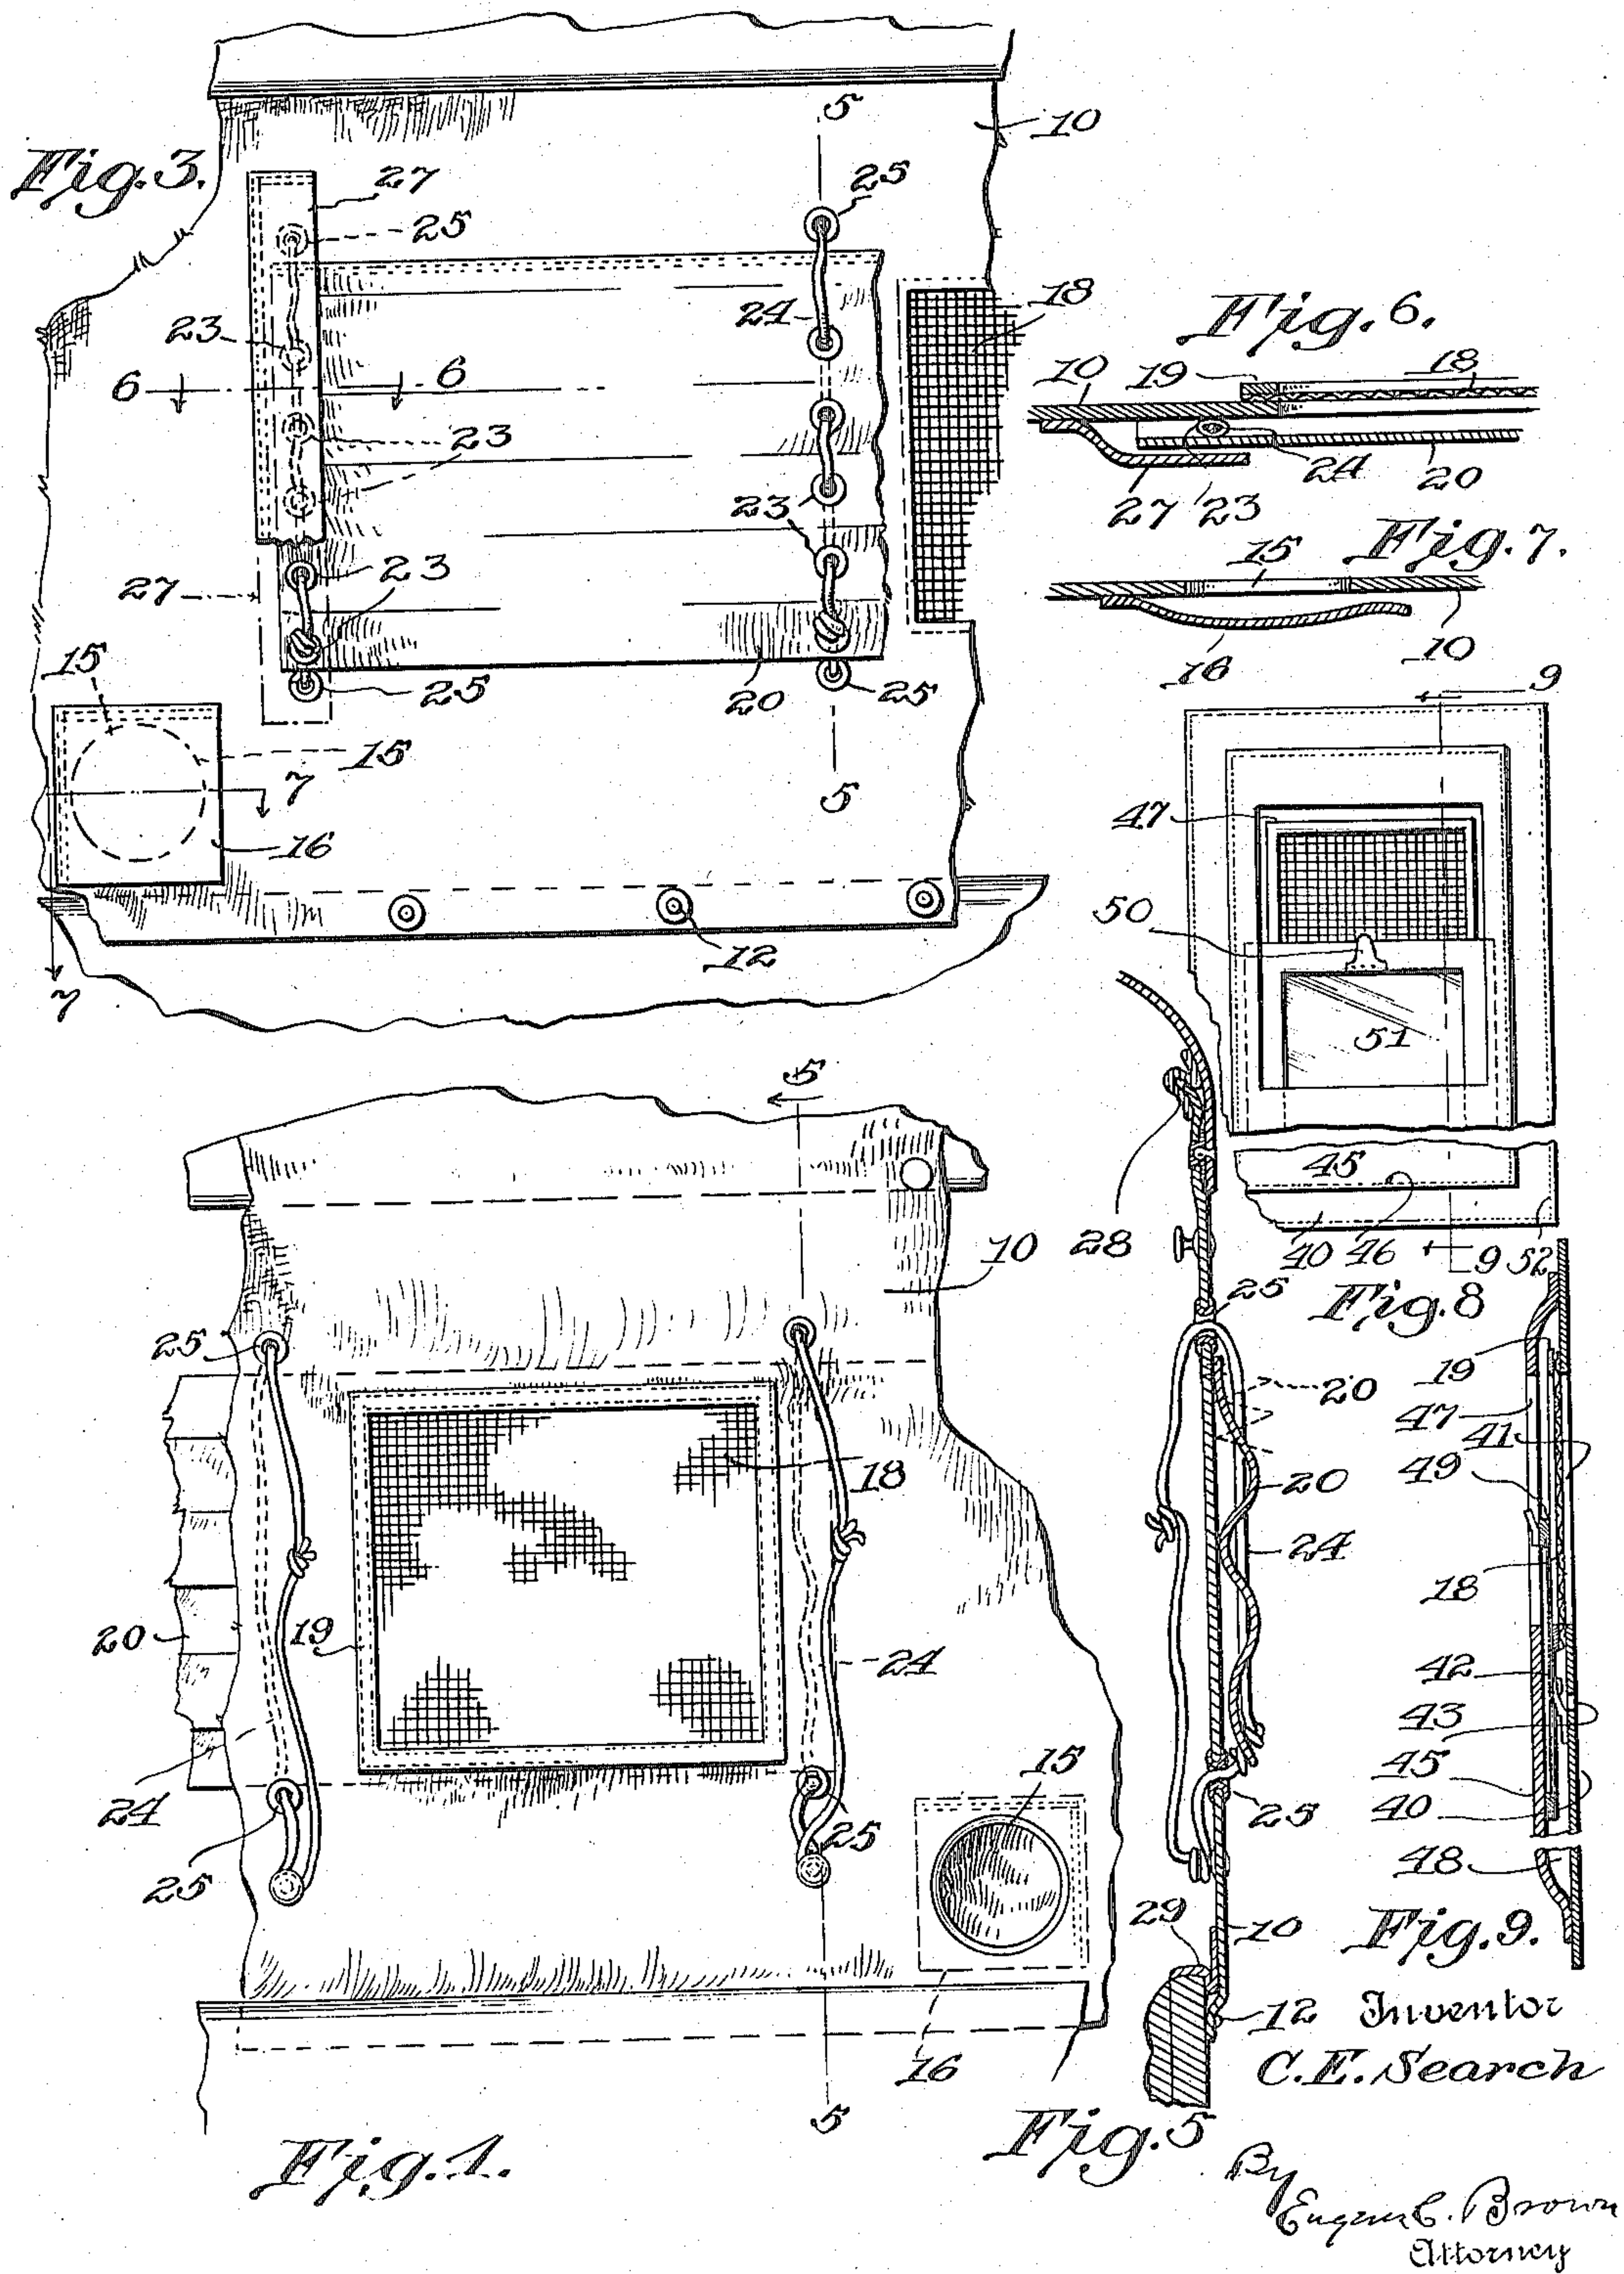 Fig. 3.
5
10
27
25
25
23
24
18
6
6
23
23
23
27
25
20
25
15
15
7
16
5
12
7
Fig. 6.
10
19
18
24
20
27
23
Fig. 7.
15
16
10
9
47
50
51
45
40
46
9
52
Fig. 8
5
10
25
18
20
19
24
24
25
25
15
16
5
Fig. 1.
28
25
20
20
24
25
29
10
12
Fig. 5
19
47
41
49
18
42
43
45
40
48
Fig. 9.
Inventor
C. E. Search
By
Eugene C. Brown
Attorney